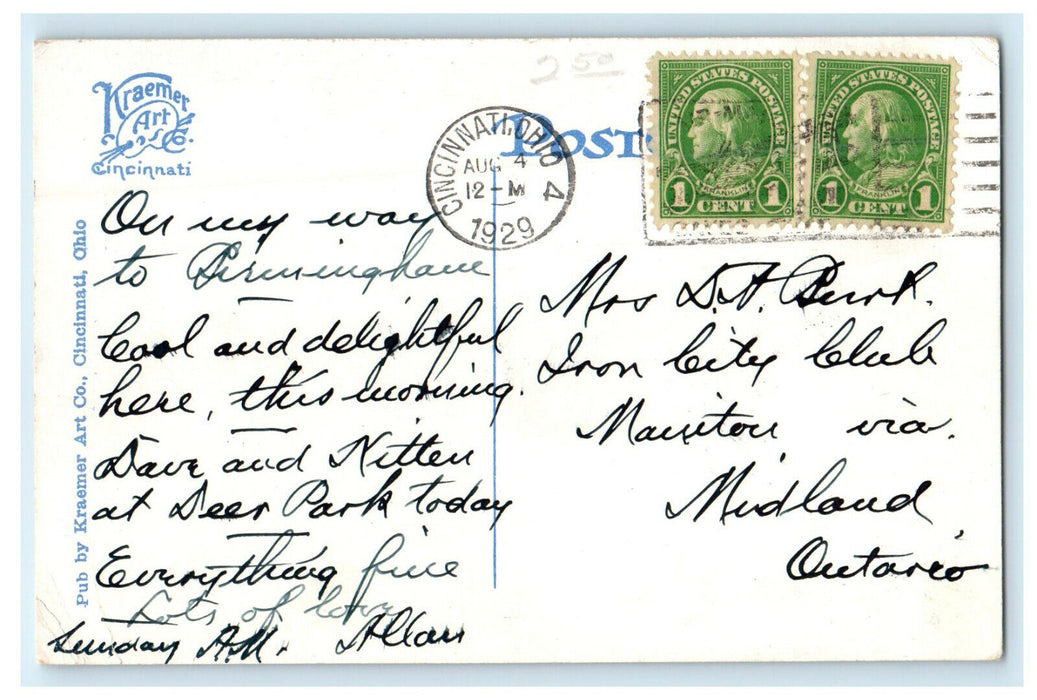 Kraemer
Art
Co.
Cincinnati
Pub by Kraemer Art Co., Cincinnati, Ohio
2 50
CINCINNATI, OHIO 4
AUG 4
12-M
1929
UNITED STATES POSTAGE
FRANKLIN
1 CENT 1
UNITED STATES POSTAGE
FRANKLIN
1 CENT 1
On my way
to Birmingham
Cool and delightful
here, this morning.
Dave and Kitten
at Deer Park today
Everything fine
Lots of love
Sunday A.M. Allan
Mrs D.A. Burk.
Iron City Club
Manitou via.
Midland,
Ontario